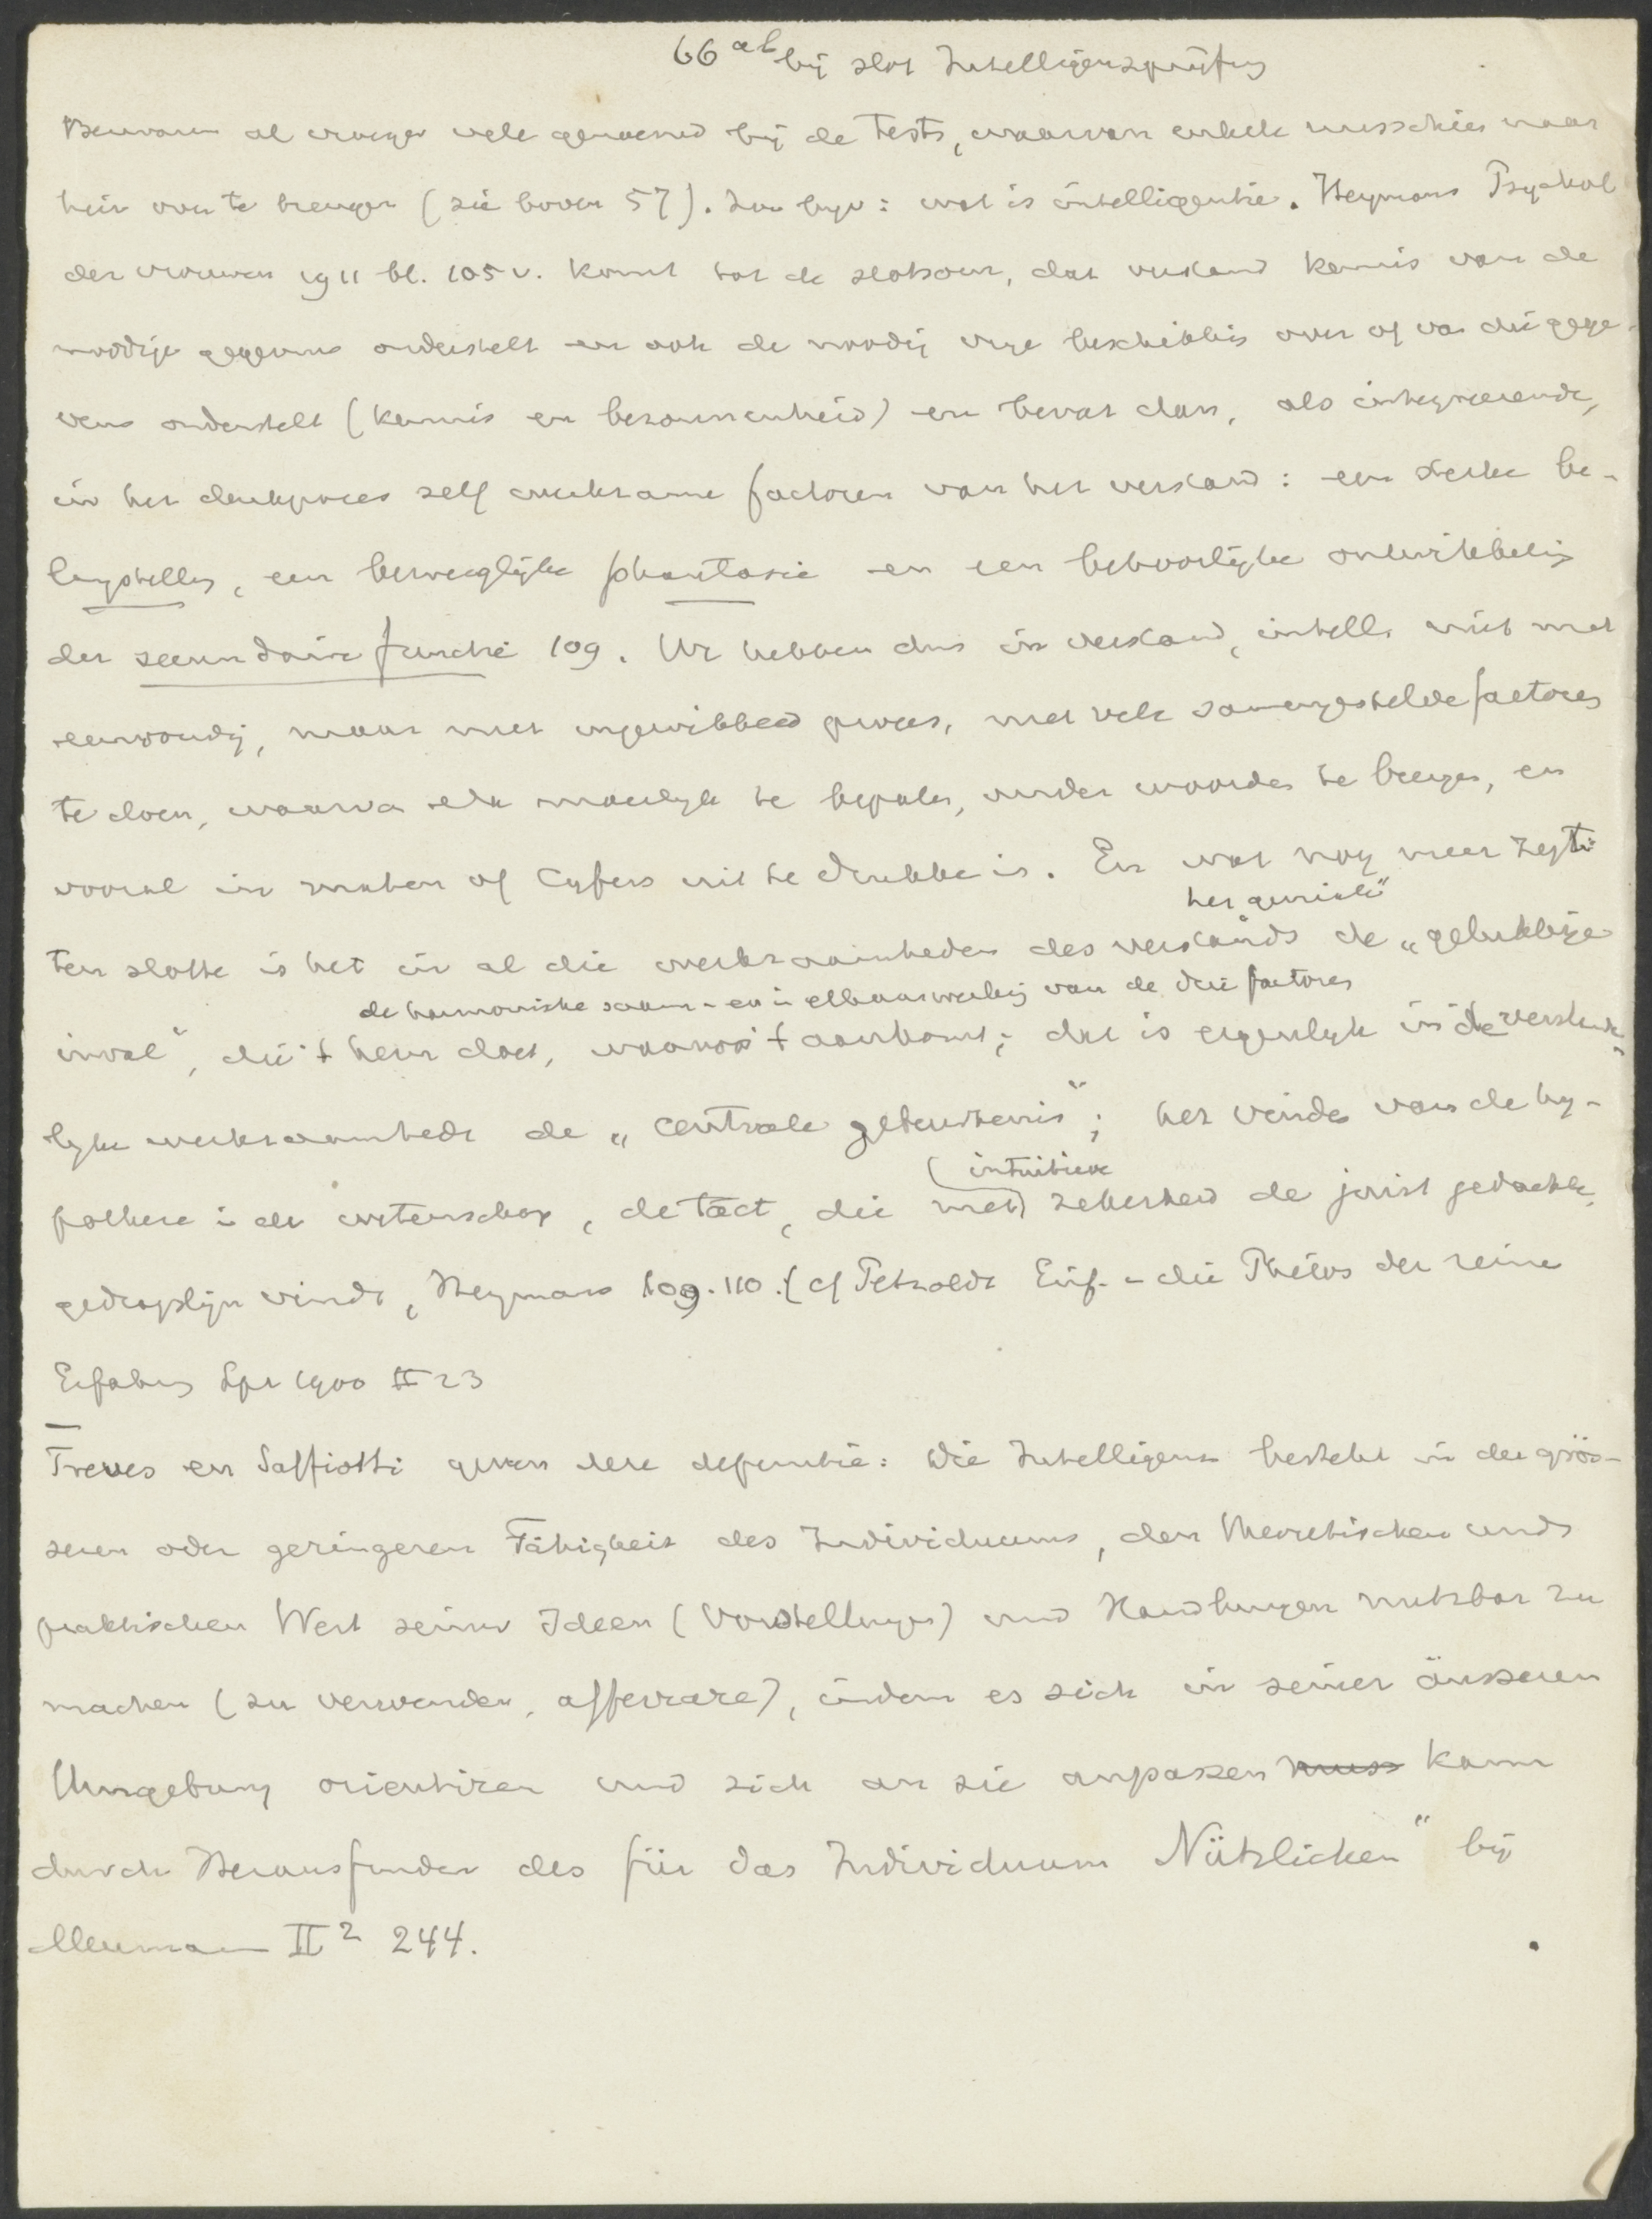 66 ab bij slot Intelligenzprüfung
Bezwaren al vroeger vele genoemd bij de Tests, waarvan enkele misschien naar
hier over te brengen (zie boven 57). Zoo bijv: wat is intelligentie. Heymans Psychol
der vrouwen 1911 bl. 105 v. komt tot de slotsom, dat verstand kennis van de
noodige gegevens onderstelt en ook de noodig vrije beschikking over die gege-
vens onderstelt (kennis en bezonnenheid) en bevat dan, als integreerende,
in het denkproces zelf werkzame factoren van het verstand: een sterke be-
langstelling, een beweeglijke phantasie en een behoorlijke ontwikkeling
der secundaire functie 109. We hebben dus in verstand, intell. niet met
eenvoudig, maar met ingewikkeld proces, met vele samengestelde factoren
te doen, waarvan elk moeilijk te bepalen, onder woorden te brengen, en
vooral in maten of Cyfers uit te drukken is. En wat nog meer zegt:
het geniale"
ten slotte is het in al die werkzaamheden des verstands de „gelukkige
de harmonische saam- en in elkaarwerking van de drie factoren
inval", die 't hem doet, waarop 't aankomt; dat is eigenlijk in de verstande-
lyke werkzaamheden de „centrale gebeurtenis"; het vinden van de hy-
(intuitieve
pothese in de wetenschap, de tact, die met) zekerheid de juist gedachte
gedragslijn vindt, Heymans 109. 110. (cf Petzoldt Einf. in die Philos der reine
Erfahrung Lpz 1900 II 23
Treves en Saffiotti geven deze definitie: Die Intelligenz besteht in der grös-
seren oder geringeren Fähigkeit des Individuums, den theoretischen und
praktischen Wert seiner Ideen (Vorstellungen) und Handlungen nutzbar zu
machen (zu verwenden, afferrare), indem es sich in seiner äusseren
Umgebung orientiren und sich an sie anpassen muss kann
durch Herausfinden des für das Individuum Nützlichen" bij
Meumann II² 244.